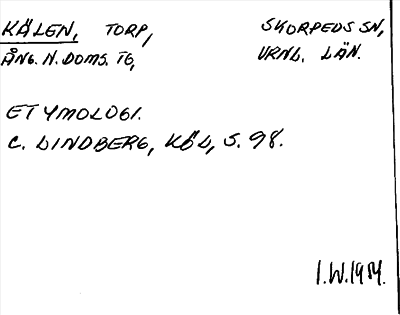 KÄLEN, TORP, SKORPEDS SN,
ÅNG. N. DOMS. TG, VRNL. LÄN.
ETYMOLOGI.
C. LINDBERG, KÖL, S. 98.
I.W.1984.